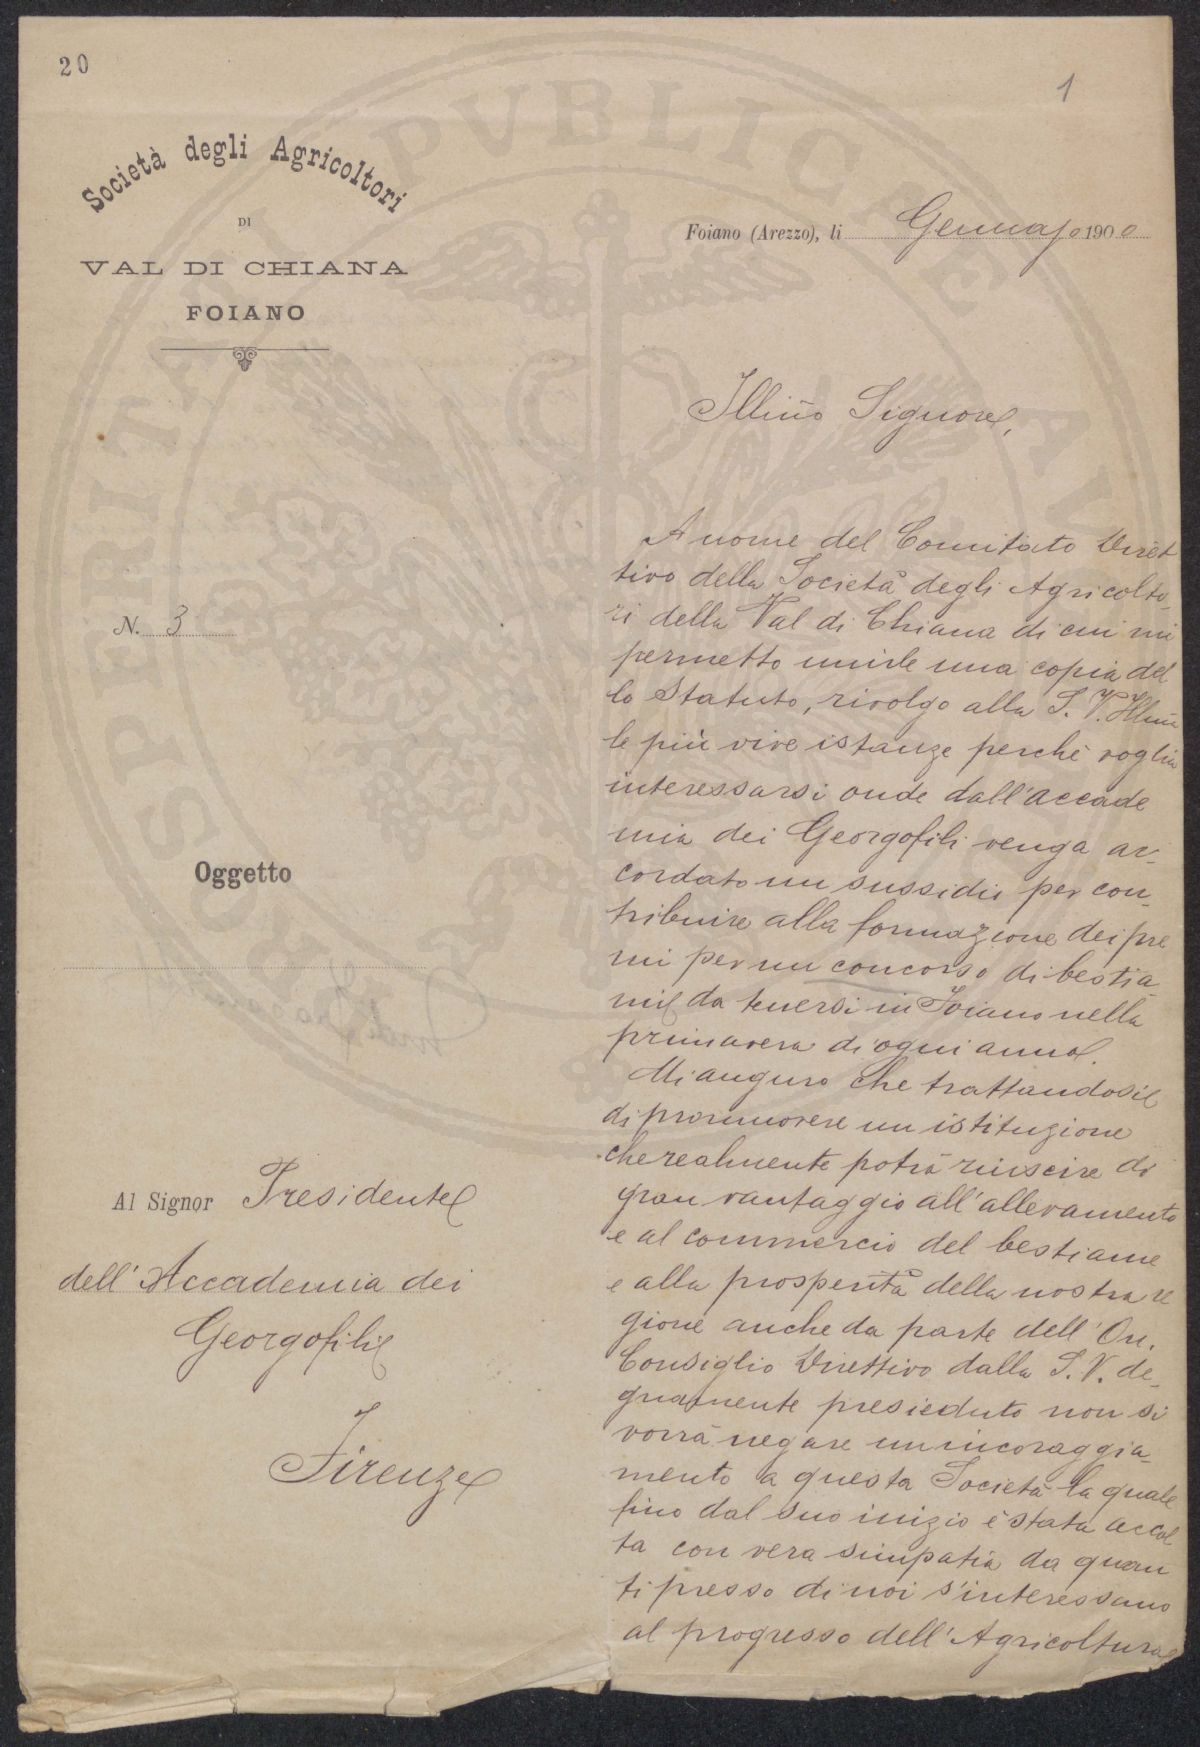 20
1
Società degli Agricoltori
DI
VAL DI CHIANA
FOIANO
Foiano (Arezzo), li Gennajo 1900
Illmo Signore,
N. 3
A nome del Comitato Diret
tivo della Società degli Agricolto-
ri della Val di Chiana di cui mi
permetto unirle una copia del
lo Statuto, rivolgo alla S. V. Illma
le più vive istanze perchè voglia
interessarsi onde dall'accade
mia dei Georgofili venga ac-
cordato un sussidio per con-
tribuire alla formazione dei pre
mi per un concorso di bestia-
mi da tenersi in Foiano nella
primavera di ogni anno.
Mi auguro che trattandosi
di promuovere un istituzione
che realmente potrà riuscire di
gran vantaggio all'allevamento
e al commercio del bestiame
e alla prosperità della nostra re
gione anche da parte dell'On.
Consiglio Direttivo dalla S. V. de-
gnamente presieduto non si
vorrà negare un incoraggia-
mento a questa Società la quale
fino dal suo inizio è stata accol
ta con vera simpatia da quan
ti presso di noi s'interessano
al progresso dell'Agricoltura
Oggetto
Al Signor Presidente
dell'Accademia dei
Georgofili
Firenze